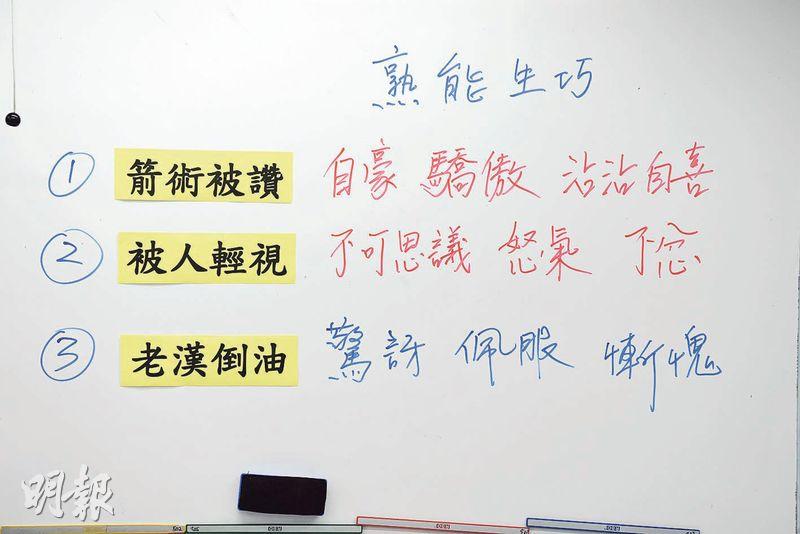 熟能生巧
① 箭術被讚 自豪 驕傲 沾沾自喜
② 被人輕視 不可思議 怒氣 不忿
③ 老漢倒油 驚訝 佩服 慚愧
明報